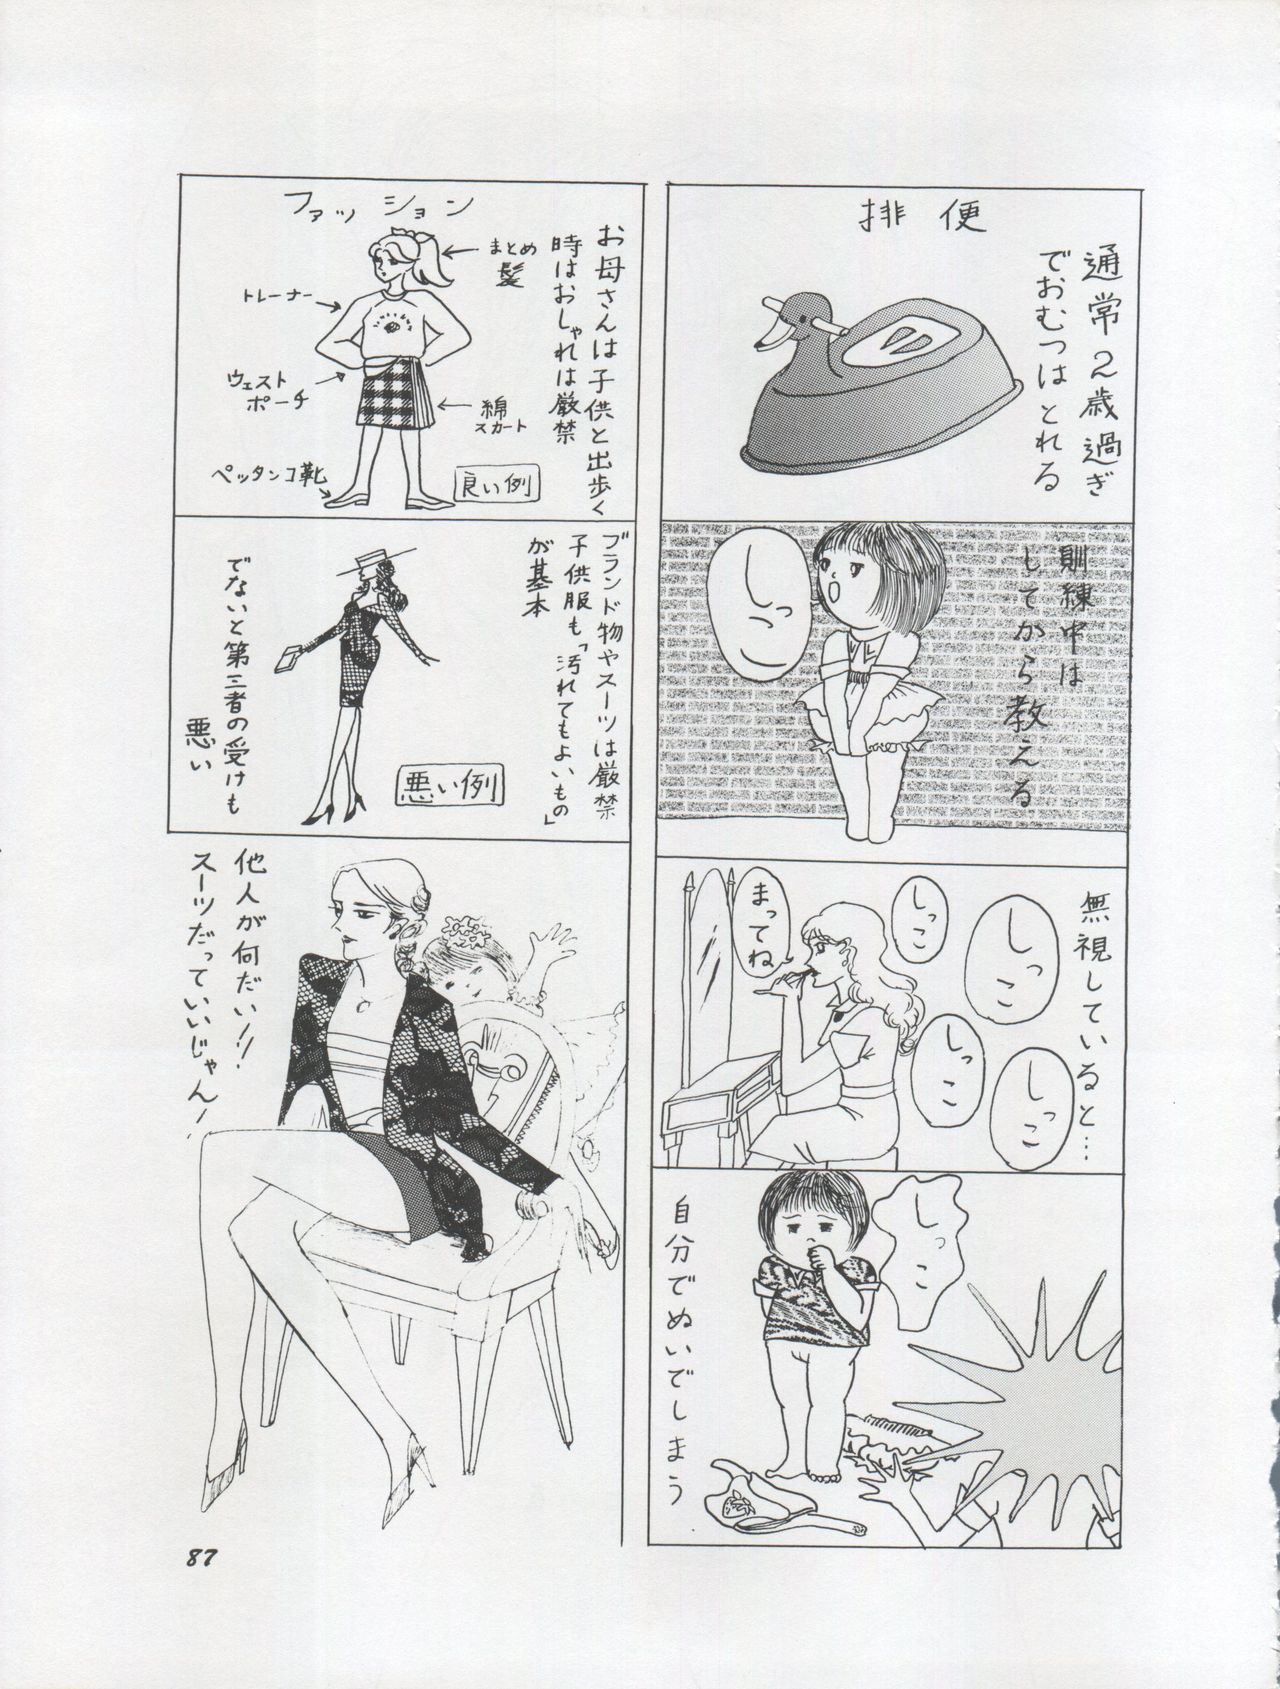 排便
通常2歳過ぎ
でおむつはとれる
訓練中は
してから教える
しっこ
無視していると…
しっこ
しっこ
しっこ
しっこ
まってね
しっこ
自分でぬいでしまう
ファッション
お母さんは子供と出歩く
時はおしゃれは厳禁
まとめ
髪
トレーナー
ウェスト
ポーチ
綿
スカート
ペッタンコ靴
良い例
ブランド物やスーツは厳禁
子供服も「汚れてもよいもの」
が基本
でないと第三者の受けも
悪い
悪い例
他人が何だい!!
スーツだっていいじゃん!
87